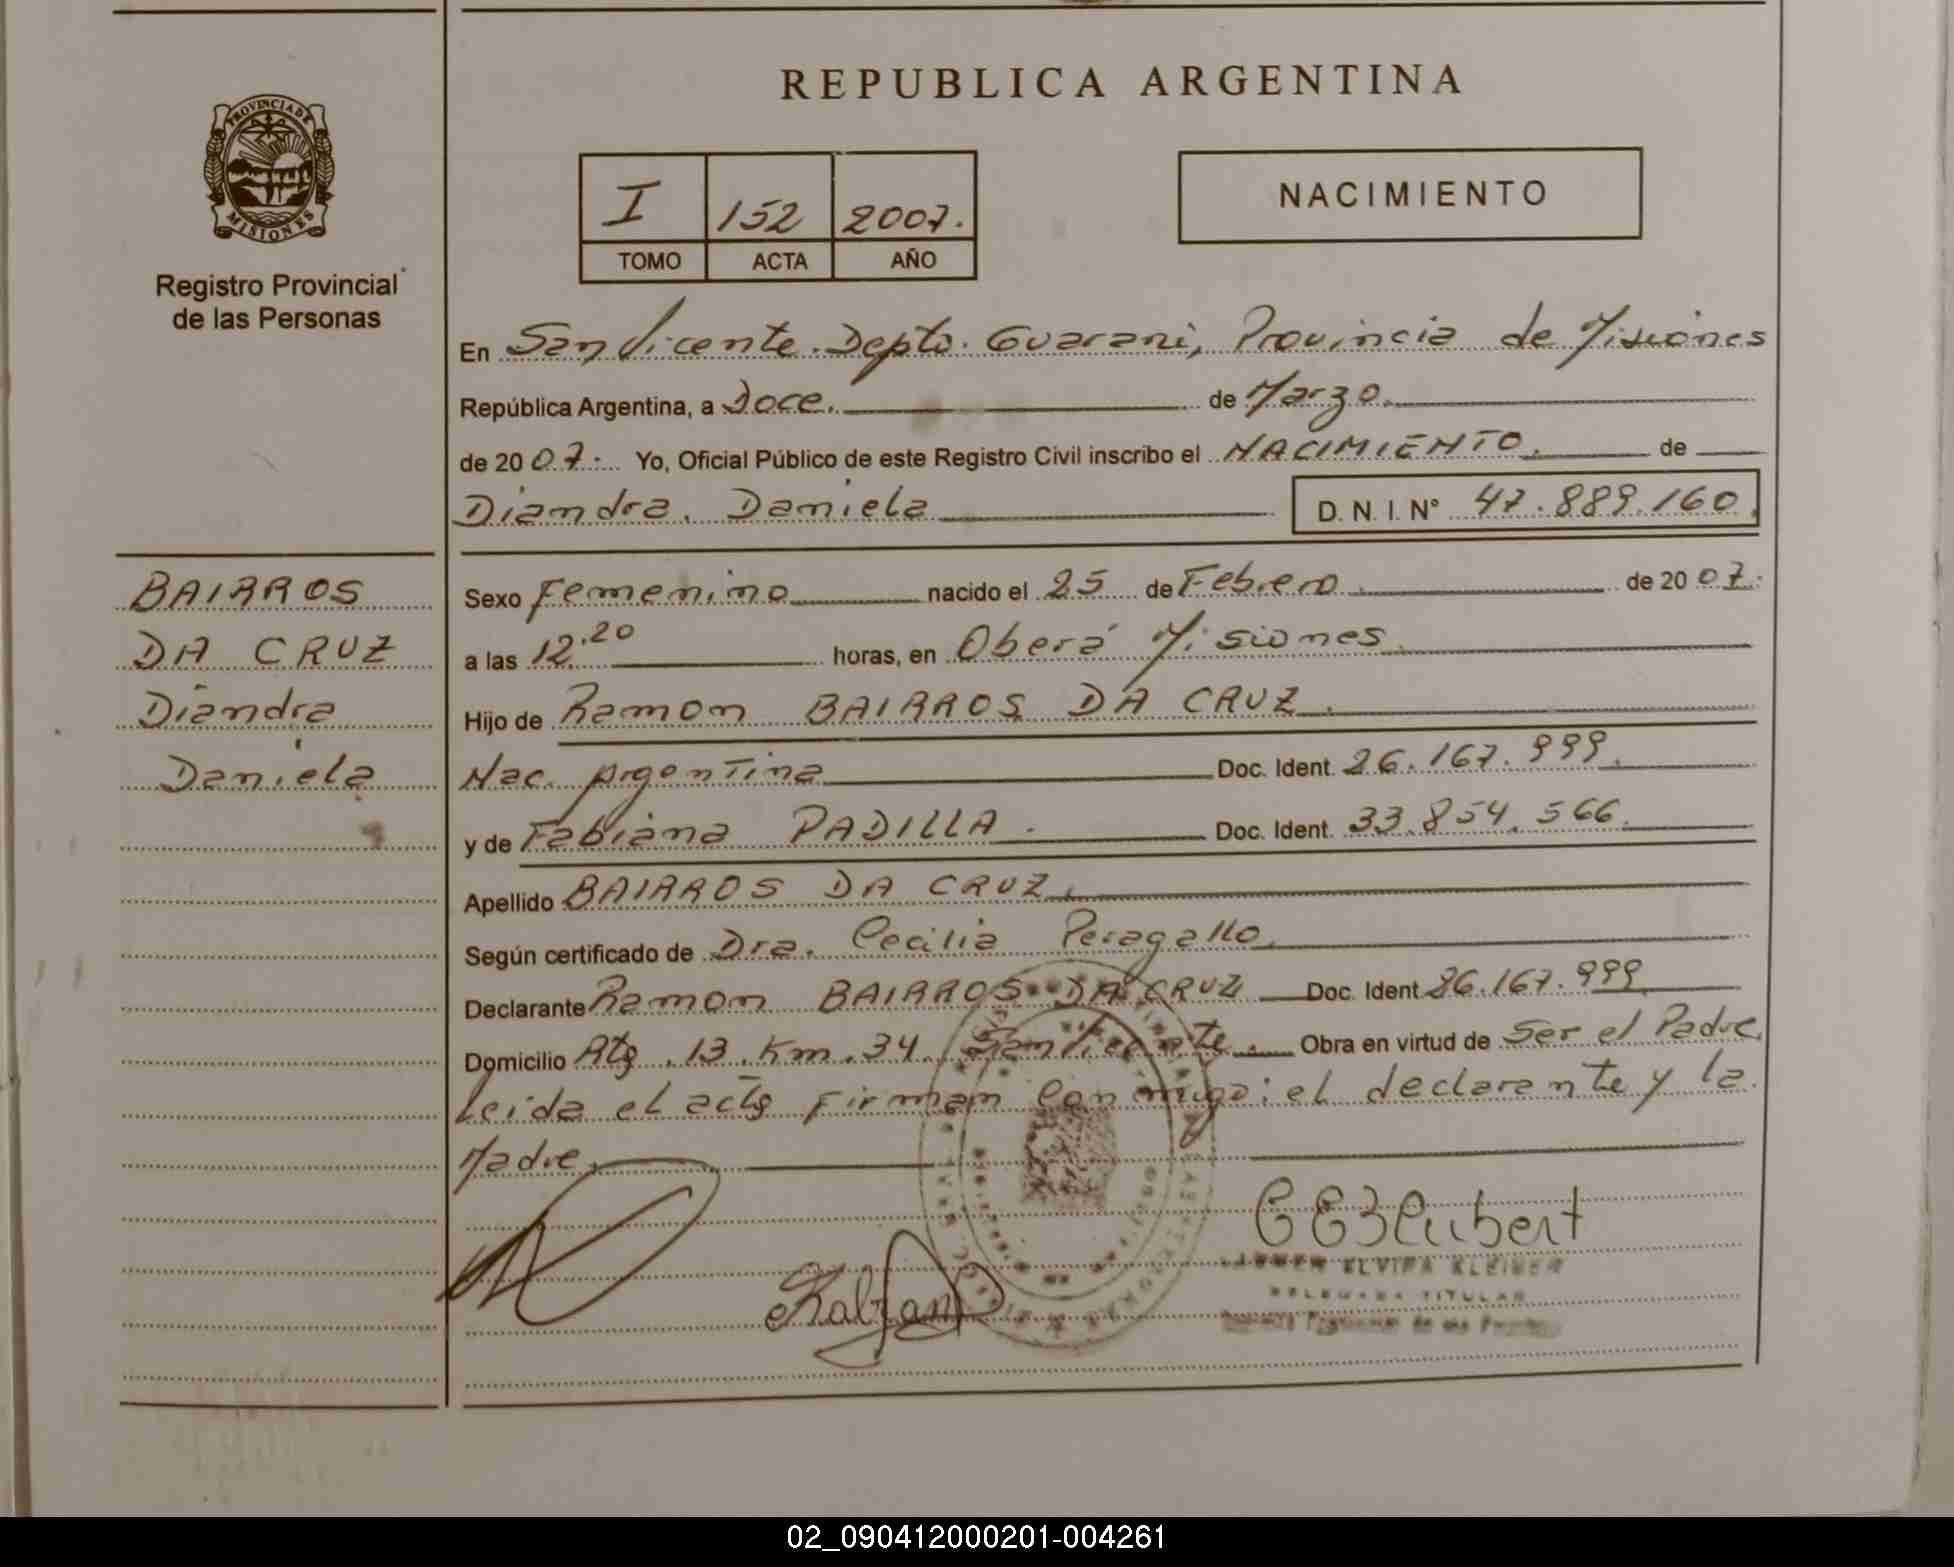 REPUBLICA ARGENTINA
PROVINCIA DE
MISIONES
Registro Provincial
de las Personas
I 152 2007.
TOMO ACTA AÑO
NACIMIENTO
En San Vicente. Depto. Guarani, Provincia de Misiones
República Argentina, a Doce. de Marzo.
de 20 07. Yo, Oficial Público de este Registro Civil inscribo el NACIMIENTO. de
Diandra. Daniela
D. N. I. N° 47.889.160.
BAIRROS
DA CRUZ
Diandra
Daniela
Sexo Femenino nacido el 25 de Febrero. de 20 07.
a las 12.20 horas, en Oberá Misiones.
Hijo de Ramon BAIRROS DA CRUZ.
Nac. Argentina Doc. Ident. 26.167.999.
y de Fabiana PADILLA. Doc. Ident. 33.854.566.
Apellido BAIRROS DA CRUZ.
Según certificado de Dra. Cecilia Peragallo.
Declarante Ramon BAIRROS DA CRUZ Doc. Ident 26.167.999
Domicilio Rta. 13. Km. 34. San Vicente. Obra en virtud de Ser el Padre.
Leida el acta Firman Conmigo: el declarante y la
Madre.
ELVIRA KLEINER
DELEGADA TITULAR
02_090412000201-004261